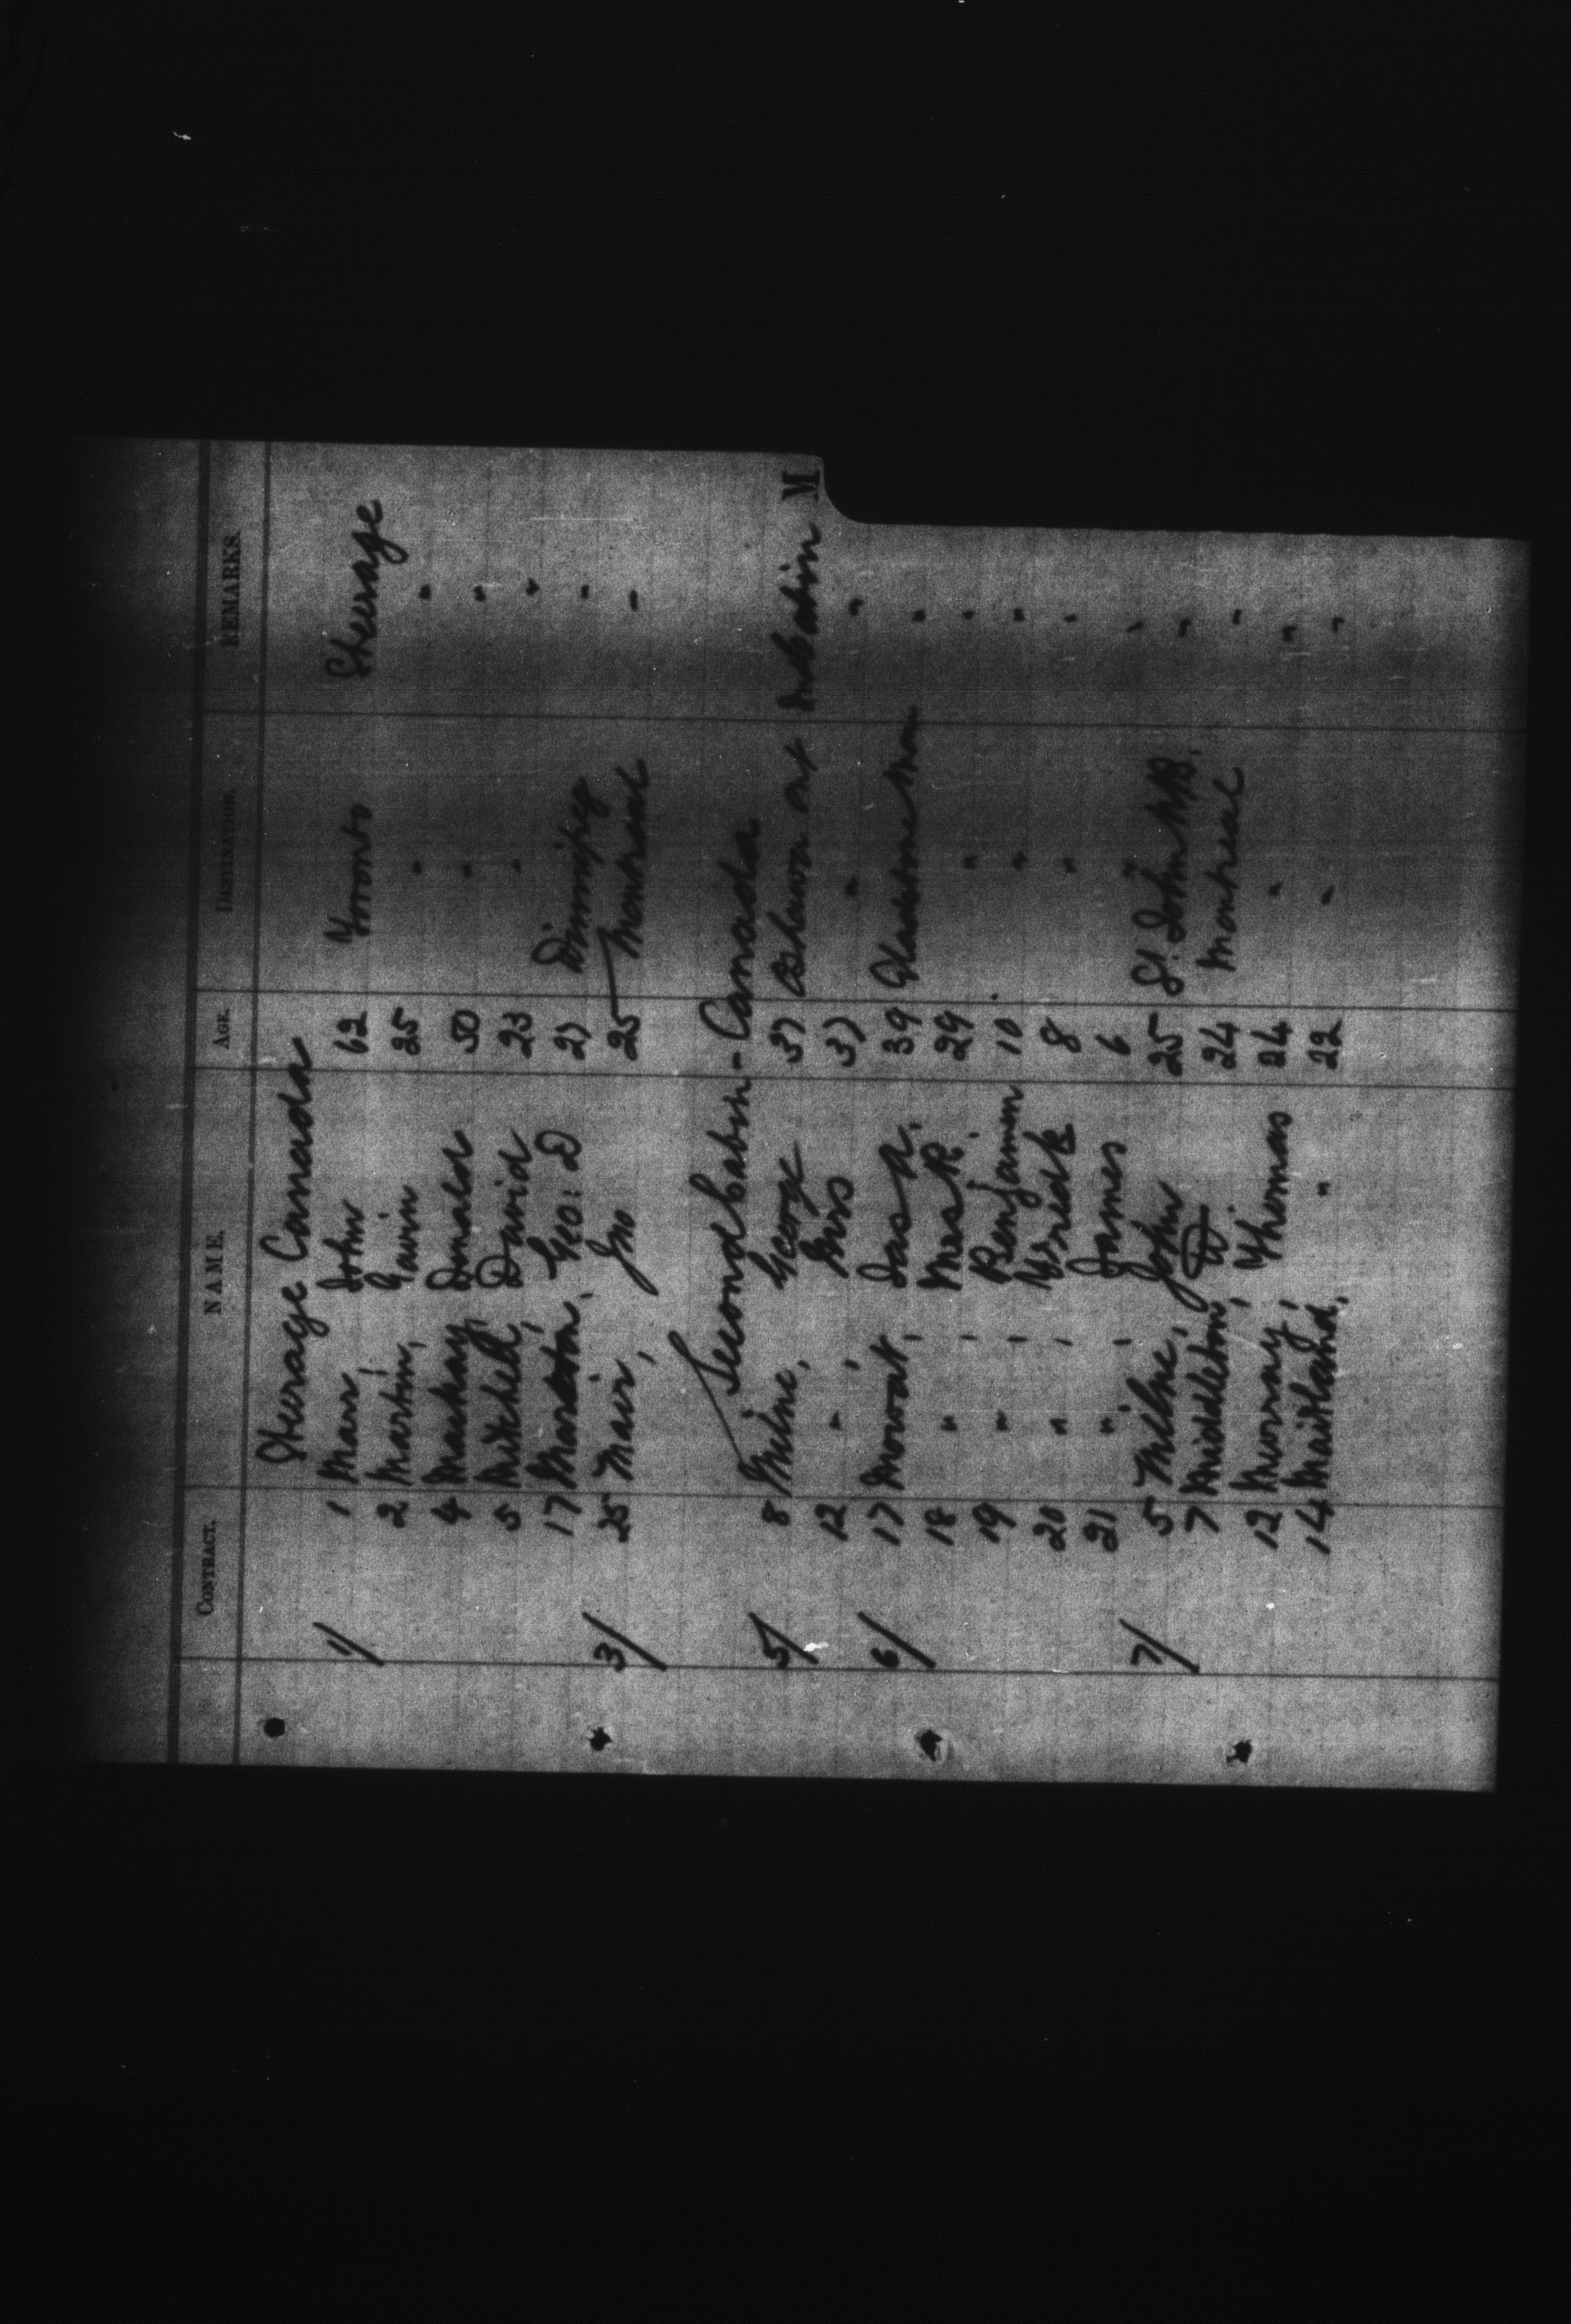 CONTRACT. NAME. AGE. DESTINATION. REMARKS.
Steerage Canada
1/ 1 Marr, John 62 Toronto Steerage
2 Martin, Gavin 25 " "
4 Mackay, Donald 50 " "
5 Mitchell, David 23 " "
17 Marston, Geo: D 27 Winnipeg "
3/ 25 Mair, Jno 25 Montreal "
Second Cabin - Canada
M
5/ 8 Milne, George 37 Oshawa Ont 2nd Cabin
12 " , Mrs 37 " "
6/ 17 Mowat, Jas R. 39 Gladstone Man "
18 " , Mrs R. 29 "
19 " , Benjamin 10 " "
20 " , R 8 " "
21 " , James 6 " "
7/ 5 Milne, John 25 St. John N.B. "
7 Middleton, W 24 Montreal "
12 Murray, Thomas 24 " "
14 Maitland, " 22 " "